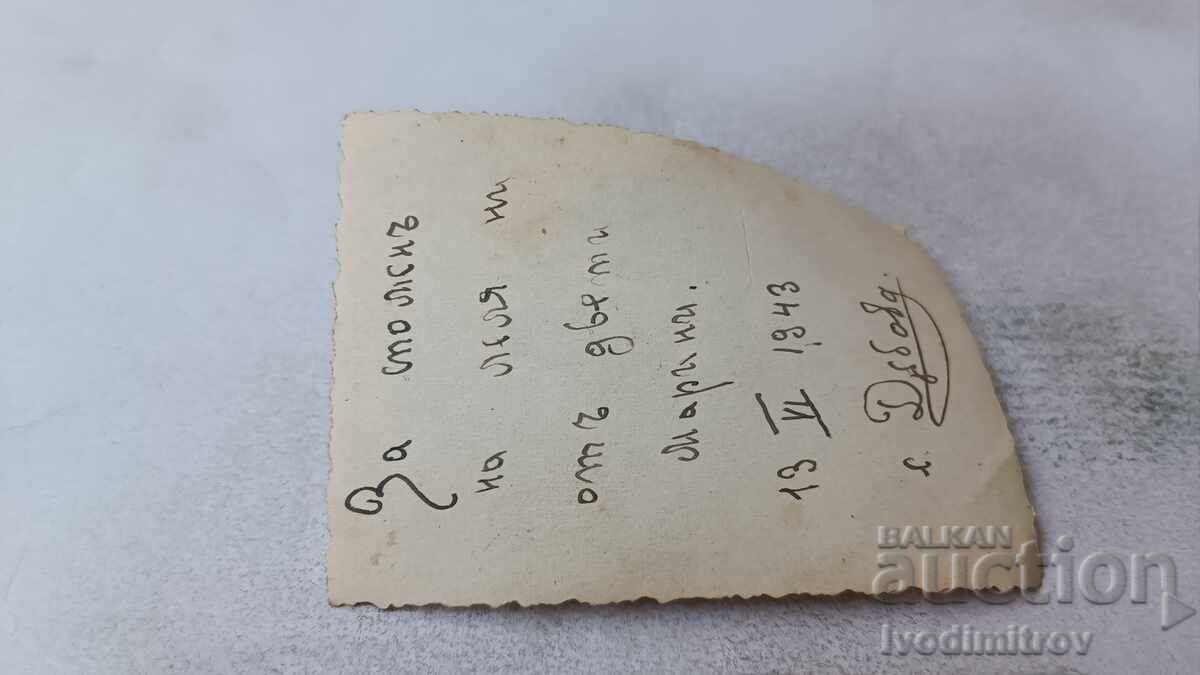 За споменъ
на леля ни
отъ двети
Марини.
13 VI 1943
с. Дебово.
BALKAN
auction
Ivodimitrov